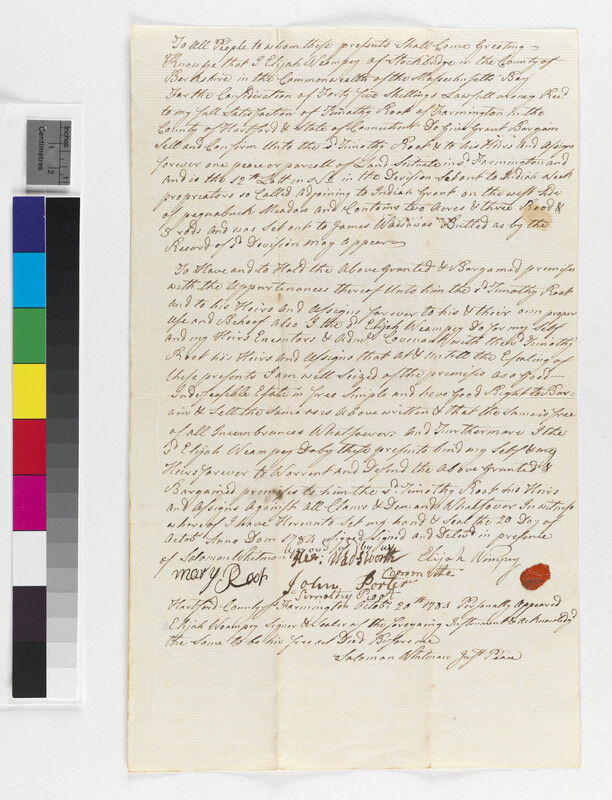 To All People to whom these presents Shall Come Greeting
Know ye that I Elijah Weampey of Stockbridge in the County of
Berkshire in the Commonwealth of the Massachusetts Bay
For the Consideration of Forty five Shillings Lawfull money Recd
to my full Satisfaction of Timothy Root of Farmington in the
County of Hartford & State of Connecticut Do Give Grant Bargain
Sell and Confirm Unto the sd Timothy Root & to his Heirs and Assigns
forever one peace or parcell of Land Situate in sd Farmington and
and is the 12th Lott in in the Division Set out to Indian Neck
propriators so Called Adjoining to Indian Grant on the west Side
of pequabuck Meadow and Contains two Acres & three Rood &
8 rods and was Set out to James Wawowas Butted as by the
Record of sd Devision may Appear
To Have and to Hold the Above granted & Bargained premises
with the Appurtenances thereof Unto him the sd Timothy Root
and to his Heirs and Assigns forever to his & their own proper
Use and Behoof Also I the sd Elijah Weampey Do for my Self
and my Heirs Executors & Admrs Covenant with the sd Timothy
Root his Heirs and Assigns that At & Untill the Ensealing of
these presents I am well Seized of the premises as a Good
Indefeasible Estate in Free Simple and have Good Right to Bar-
ain & Sell the Same as is Above written & that the Same is free
of all Incumbrances Whatsoever And Furthermore I the
sd Elijah Weampey Do by these presents bind my Self & my
Heirs forever to Warrent and Defend the Above Granted &
Bargained premises to him the sd Timothy Root his Heirs
and Assigns Against All Claims & Demands Whatsoever In witness
whereof I have Hereunto Set my hand & Seal the 20 Day of
Octobr Anno Dom 1784 Signed Sealed and Deliverd in presence
of Solomon Whitman Elijah Wimpey
Approved by us
Hez. Wadsworth
mary Root John Porter Committe
Timothy Root
Hartford County ss Farmington Octobr 20th 1784 Personally Appeared
Elijah Weampey Signer & Sealer of the foregoing Instrument & acknowledgd
the Same to be his free act Deed Before me
Solomon Whitman Just Peace
Inches
1
2
Centimetres